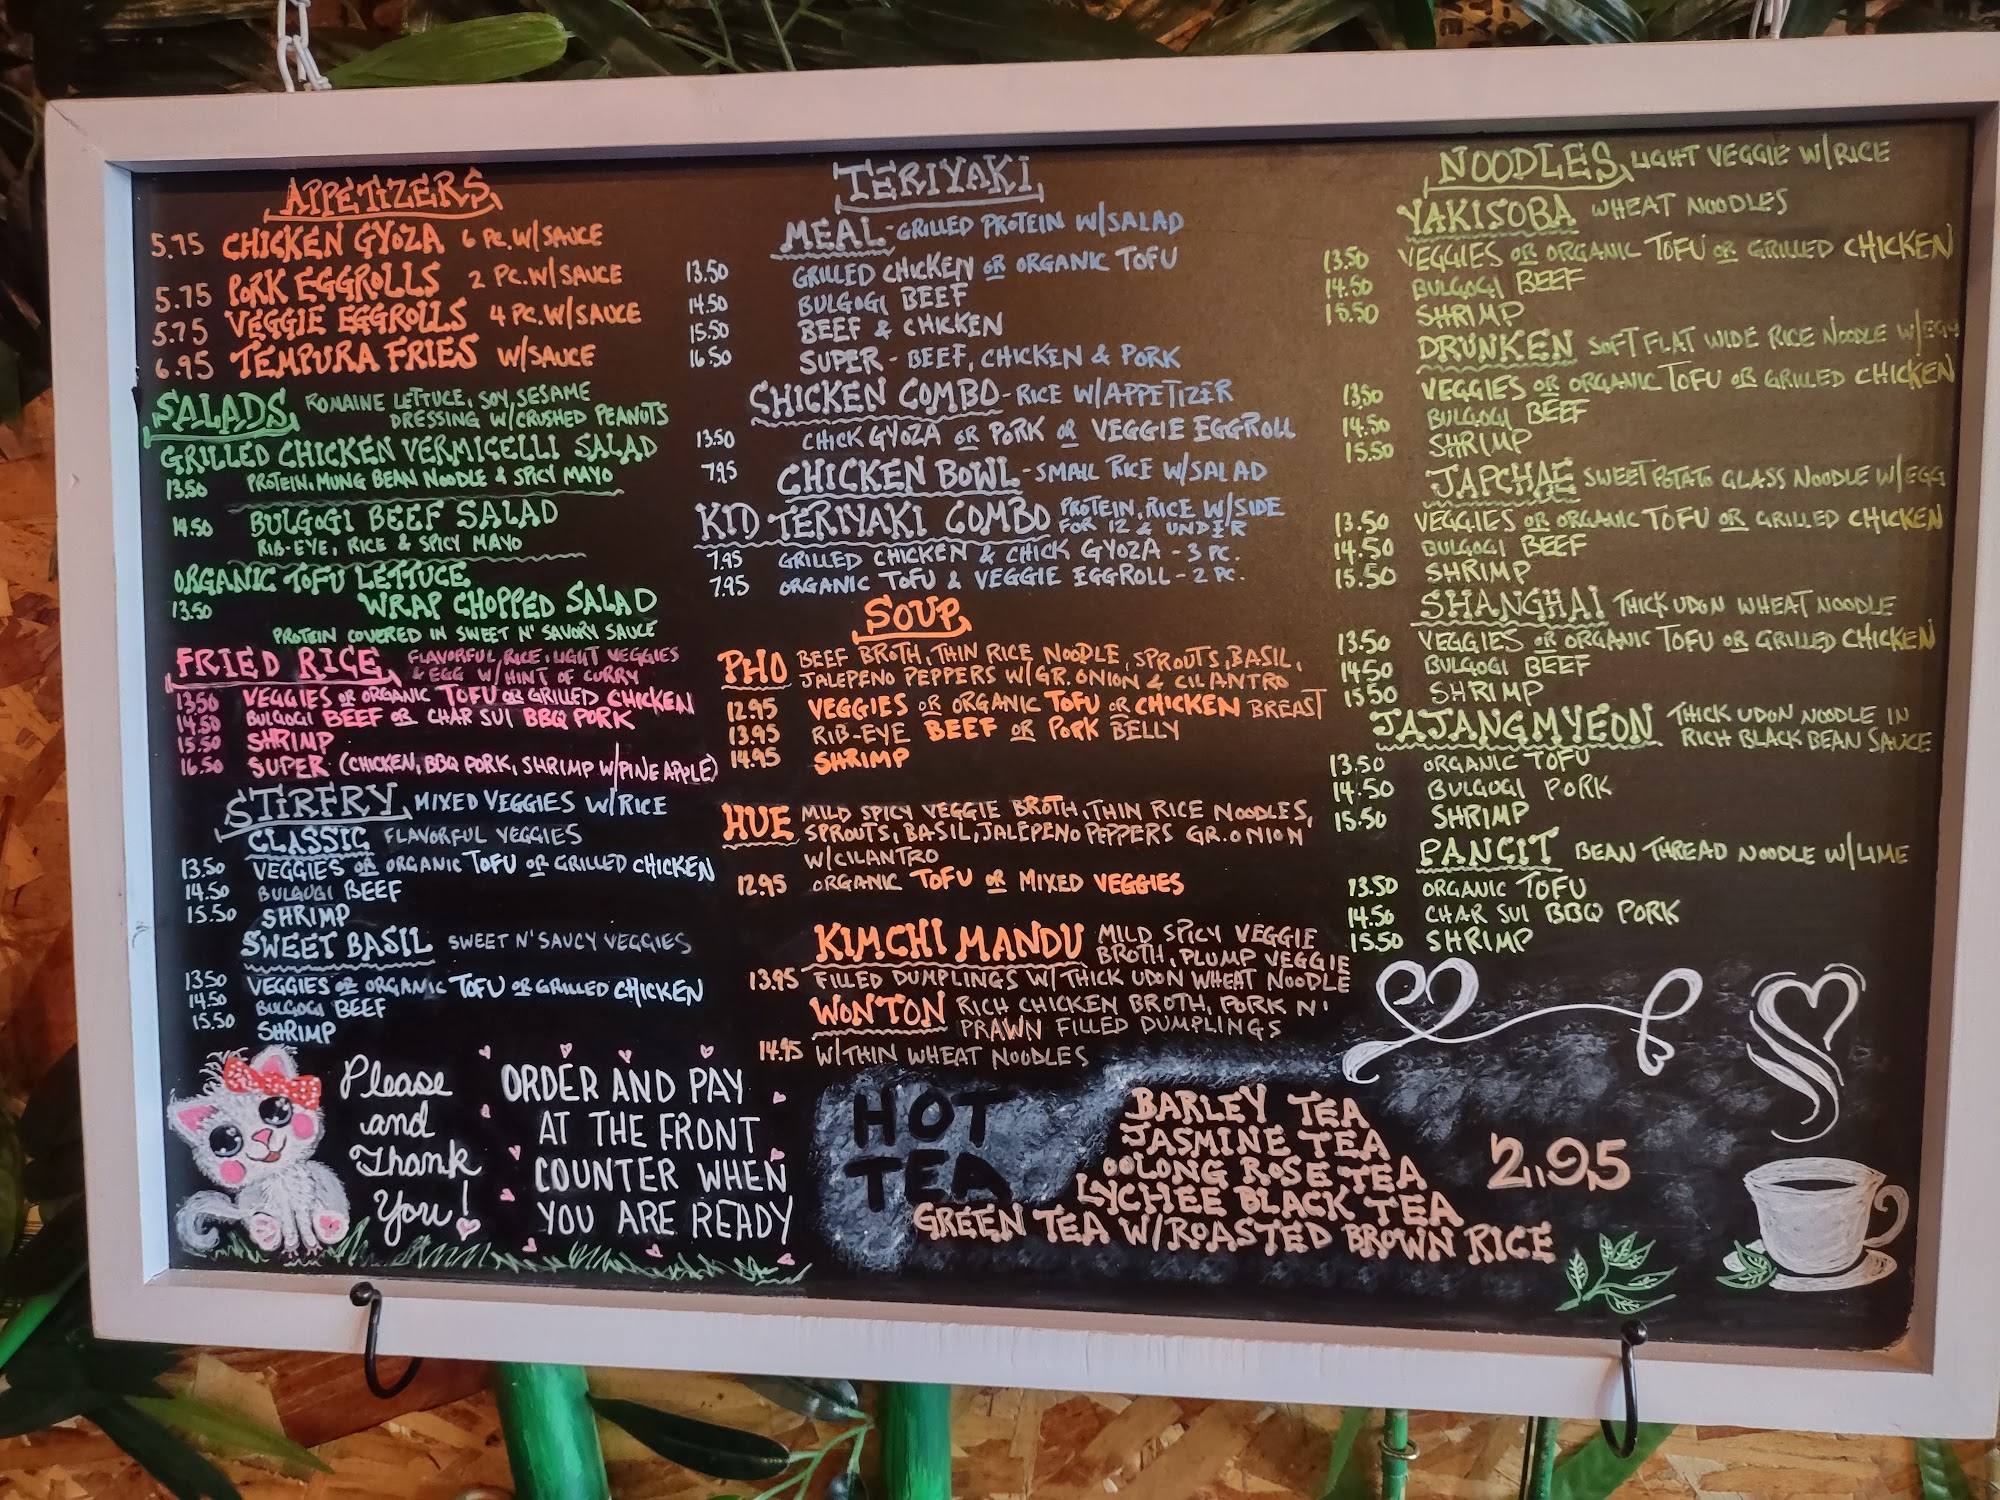 APPETIZERS
5.75 CHICKEN GYOZA 6 PC. W/SAUCE
5.75 PORK EGGROLLS 2 PC. W/SAUCE
5.75 VEGGIE EGGROLLS 4 PC. W/SAUCE
6.95 TEMPURA FRIES W/SAUCE
SALADS ROMAINE LETTUCE, SOY, SESAME
DRESSING W/CRUSHED PEANUTS
GRILLED CHICKEN VERMICELLI SALAD
13.50 PROTEIN, MUNG BEAN NOODLE & SPICY MAYO
14.50 BULGOGI BEEF SALAD
RIB-EYE, RICE & SPICY MAYO
ORGANIC TOFU LETTUCE
13.50 WRAP CHOPPED SALAD
PROTEIN COVERED IN SWEET N' SAVORY SAUCE
FRIED RICE FLAVORFUL RICE, LIGHT VEGGIES
& EGG W/HINT OF CURRY
13.50 VEGGIES OR ORGANIC TOFU OR GRILLED CHICKEN
14.50 BULGOGI BEEF OR CHAR SUI BBQ PORK
15.50 SHRIMP
16.50 SUPER (CHICKEN, BBQ PORK, SHRIMP W/PINEAPPLE)
STIRFRY MIXED VEGGIES W/RICE
CLASSIC FLAVORFUL VEGGIES
13.50 VEGGIES OR ORGANIC TOFU OR GRILLED CHICKEN
14.50 BULGOGI BEEF
15.50 SHRIMP
SWEET BASIL SWEET N' SAUCY VEGGIES
13.50 VEGGIES OR ORGANIC TOFU OR GRILLED CHICKEN
14.50 BULGOGI BEEF
15.50 SHRIMP
Please
and
Thank
You!
ORDER AND PAY
AT THE FRONT
COUNTER WHEN
YOU ARE READY
TERIYAKI
MEAL - GRILLED PROTEIN W/SALAD
13.50 GRILLED CHICKEN OR ORGANIC TOFU
14.50 BULGOGI BEEF
15.50 BEEF & CHICKEN
16.50 SUPER - BEEF, CHICKEN & PORK
CHICKEN COMBO - RICE W/APPETIZER
13.50 CHICK GYOZA OR PORK OR VEGGIE EGGROLL
7.95 CHICKEN BOWL - SMALL RICE W/SALAD
KID TERIYAKI COMBO PROTEIN, RICE W/SIDE
FOR 12 & UNDER
7.95 GRILLED CHICKEN & CHICK GYOZA - 3 PC.
7.95 ORGANIC TOFU & VEGGIE EGGROLL - 2 PC.
SOUP
PHO BEEF BROTH, THIN RICE NOODLE, SPROUTS, BASIL,
JALEPENO PEPPERS W/GR. ONION & CILANTRO
12.95 VEGGIES OR ORGANIC TOFU OR CHICKEN BREAST
13.95 RIB-EYE BEEF OR PORK BELLY
14.95 SHRIMP
HUE MILD SPICY VEGGIE BROTH, THIN RICE NOODLES,
SPROUTS, BASIL, JALEPENO PEPPERS GR. ONION
W/CILANTRO
12.95 ORGANIC TOFU OR MIXED VEGGIES
KIMCHI MANDU MILD SPICY VEGGIE
BROTH, PLUMP VEGGIE
13.95 FILLED DUMPLINGS W/THICK UDON WHEAT NOODLE
WONTON RICH CHICKEN BROTH, PORK N'
PRAWN FILLED DUMPLINGS
14.95 W/THIN WHEAT NOODLES
NOODLES LIGHT VEGGIE W/RICE
YAKISOBA WHEAT NOODLES
13.50 VEGGIES OR ORGANIC TOFU OR GRILLED CHICKEN
14.50 BULGOGI BEEF
15.50 SHRIMP
DRUNKEN SOFT FLAT WIDE RICE NOODLE W/EGG
13.50 VEGGIES OR ORGANIC TOFU OR GRILLED CHICKEN
14.50 BULGOGI BEEF
15.50 SHRIMP
JAPCHAE SWEET POTATO GLASS NOODLE W/EGG
13.50 VEGGIES OR ORGANIC TOFU OR GRILLED CHICKEN
14.50 BULGOGI BEEF
15.50 SHRIMP
SHANGHAI THICK UDON WHEAT NOODLE
13.50 VEGGIES OR ORGANIC TOFU OR GRILLED CHICKEN
14.50 BULGOGI BEEF
15.50 SHRIMP
JAJANGMYEON THICK UDON NOODLE IN
RICH BLACK BEAN SAUCE
13.50 ORGANIC TOFU
14.50 BULGOGI PORK
15.50 SHRIMP
PANCIT BEAN THREAD NOODLE W/LIME
13.50 ORGANIC TOFU
14.50 CHAR SUI BBQ PORK
15.50 SHRIMP
HOT
TEA
BARLEY TEA
JASMINE TEA
OOLONG ROSE TEA
LYCHEE BLACK TEA
GREEN TEA W/ROASTED BROWN RICE
2.95